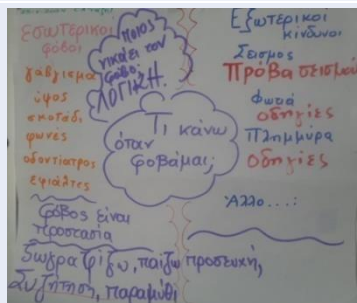 Εσωτερικοί
φόβοι
γάβγισμα
ύψος
σκοτάδι
φωνές
οδοντίατρος
εφιάλτες
Φόβος είναι
προστασία
Ποιος
νικάει τον
φόβο;
ΛΟΓΙΚΗ.
Τι κάνω
όταν
φοβάμαι;
Εξωτερικοί
κίνδυνοι
Σεισμός
Πρόβα σεισμού
Φωτιά
οδηγίες
Πλημμύρα
Οδηγίες
Άλλο...:
Ζωγραφίζω, παίζω, προσευχή,
Συζήτηση, παραμύθι